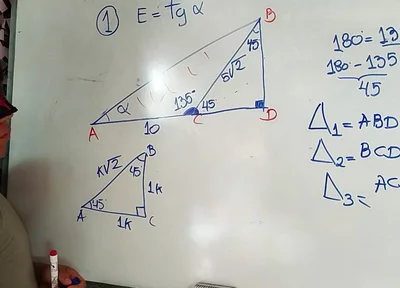 ① E = tg α
B
45
5√2
α
135°
45
A
10
C
D
180 = 13
180 - 135
45
Δ₁ = ABD
Δ₂ = BCD
Δ₃ = AC
B
K√2
45
1K
A
45
1K
C